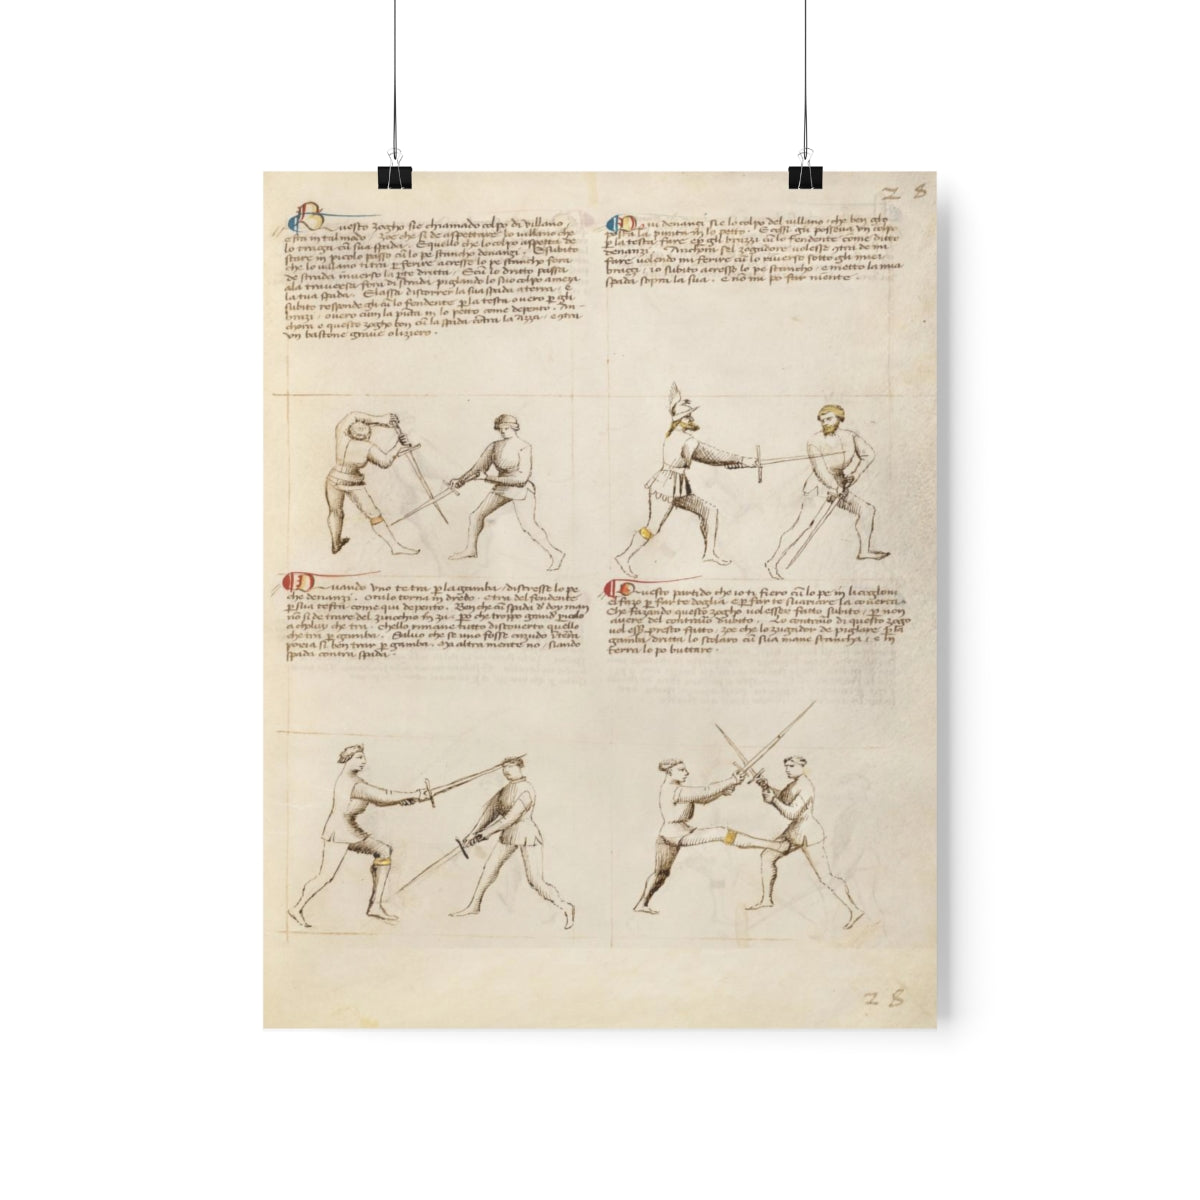 28
Questo zogho sie chiamado colpo di villano
e sta in tal modo zoe che si de aspettare lo villano che
lo traga cu sua spada. E quello che lo colpo aspetta de
stare in picolo passo cu lo pe stancho denanzi. E subito
che lo villano ti tra p ferire acresse lo pe stancho fora
de strada inverso la pte dritta. E cu lo dritto passa
ala traversa fora di strada piglando lo suo colpo a meza
la tua spada. E lassa discorrer la sua spada a terra / e
subito responde gli cu lo fendente p la testa overo p gli
brazi / overo cum la puta in lo petto come depento. An-
chora e questo zogho bon cu la spada contra la azza / contra
un bastone grave o lizero.
Qui denanci si e lo colpo del villano che ben glo
posta la punta in lo petto. E cossi gli posseva un colpo
p la testa fare e p gli brazzi cu lo fendente come ditto
denanzi. Anchora sel zogadore volesse contra de mi
fare volendo mi ferire cu lo riverso sotto gli miei
brazzi / io subito acresso lo pe stancho e metto la mia
spada sopra la sua. e no mi po far niente.
Quando uno te tra p la gamba / discresse lo pe
che denanzi. O tu lo torna in dredo. e tra del fendente
p sua testa come qui depento. Ben che cu spada di doy man
no si de trare del zinochio in zu. po che troppo grand piculo
a cholui che tra. Chello rimane tutto discoverto quello
che tra p gamba. Salvo che se uno fosse cazudo in terra
poria si ben trar p gamba. Ma altra mente no / siando
spada contra spada.
Questo partido che io ti fiero cu lo pe in li coglioni
el fazo p far te doglia e p far te svariare la coverta.
Che fazando questo zogho vol esser fatto subito / p non
avere del contrario dubito. Lo contrario di questo zogo
vol esser presto fatto / zoe che lo zugador de piglare p la
gamba / dritta lo scolaro cu sua mane stancha / e in
terra lo po buttare.
28